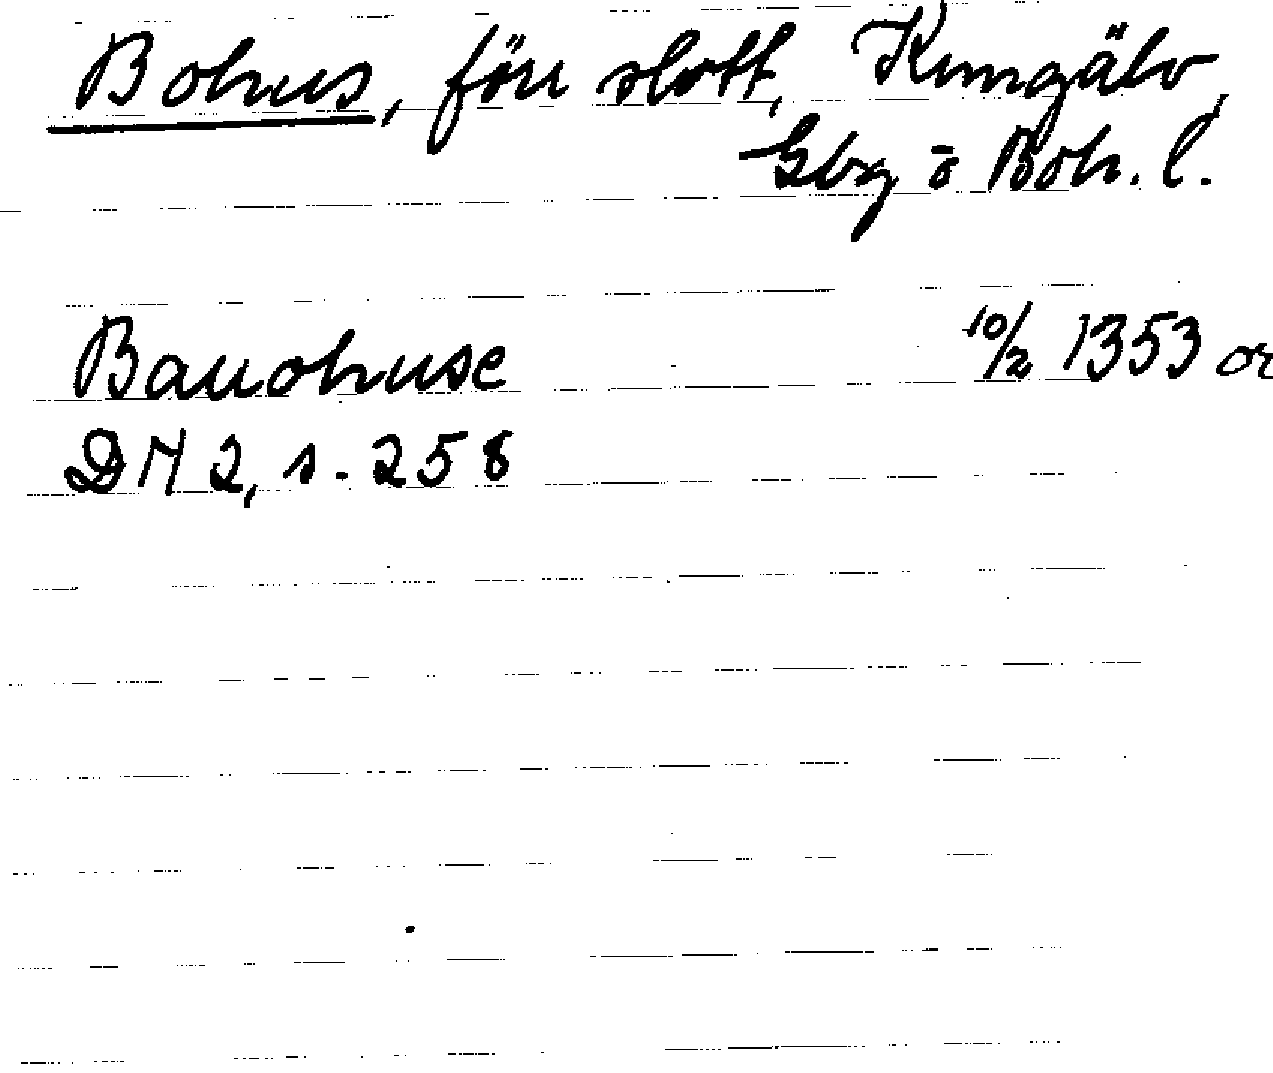 Bohus, förr slott, Kungälv,
Gbg o Boh. l.
Bauohuse 10/2 1353 or
DN 2, s. 258